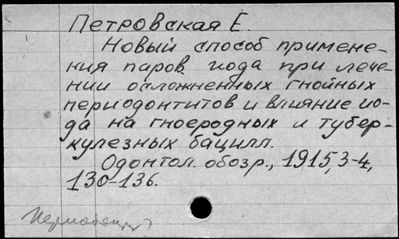 Петровская Е.
Новый способ примене-
ния паров иода при лече-
нии осложненных гнойных
периодонтитов и влияние ио-
да на гноеродных и тубер-
кулезных бацилл.
Одонтол. обозр., 1915, 3-4,
130-136.